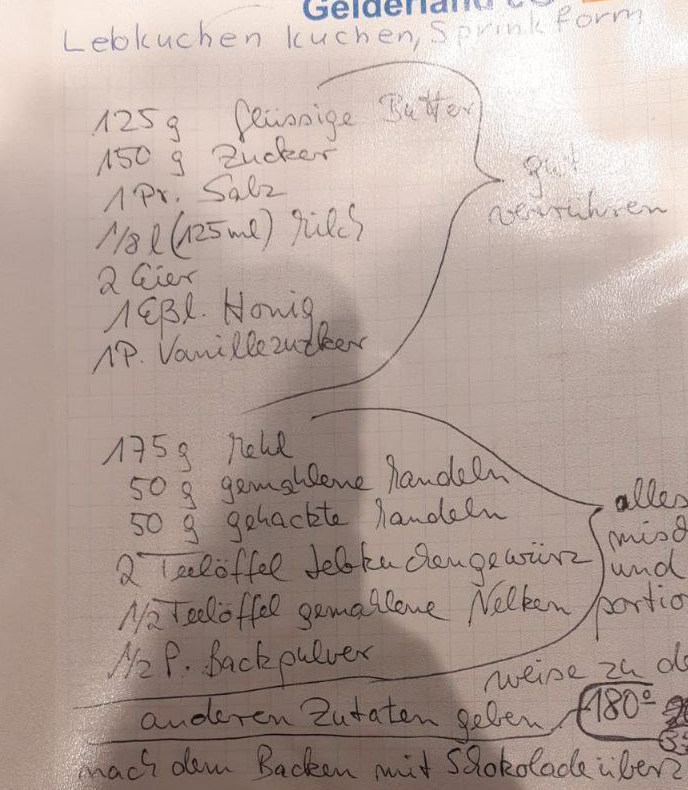 Gelderland
Lebkuchen kuchen, Sprinkform
125 g flüssige Butter
150 g Zucker
1 Pr. Salz
1/8 l (125 ml) Milch
2 Eier
1 Eßl. Honig
1 P. Vanillezucker
gut
verrühren
175 g Mehl
50 g gemahlene Mandeln
50 g gehackte Mandeln
2 Teelöffel Lebkuchengewürz
1/2 Teelöffel gemahlene Nelken
1/2 P. Backpulver
alles
misc
und
portio
weise zu de
anderen Zutaten geben
180°
nach dem Backen mit Schokolade überz